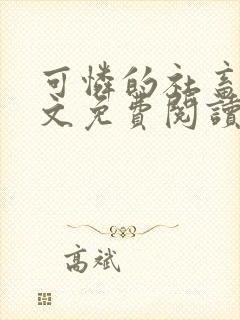 可憐的社畜
文免費閱讀
高斌